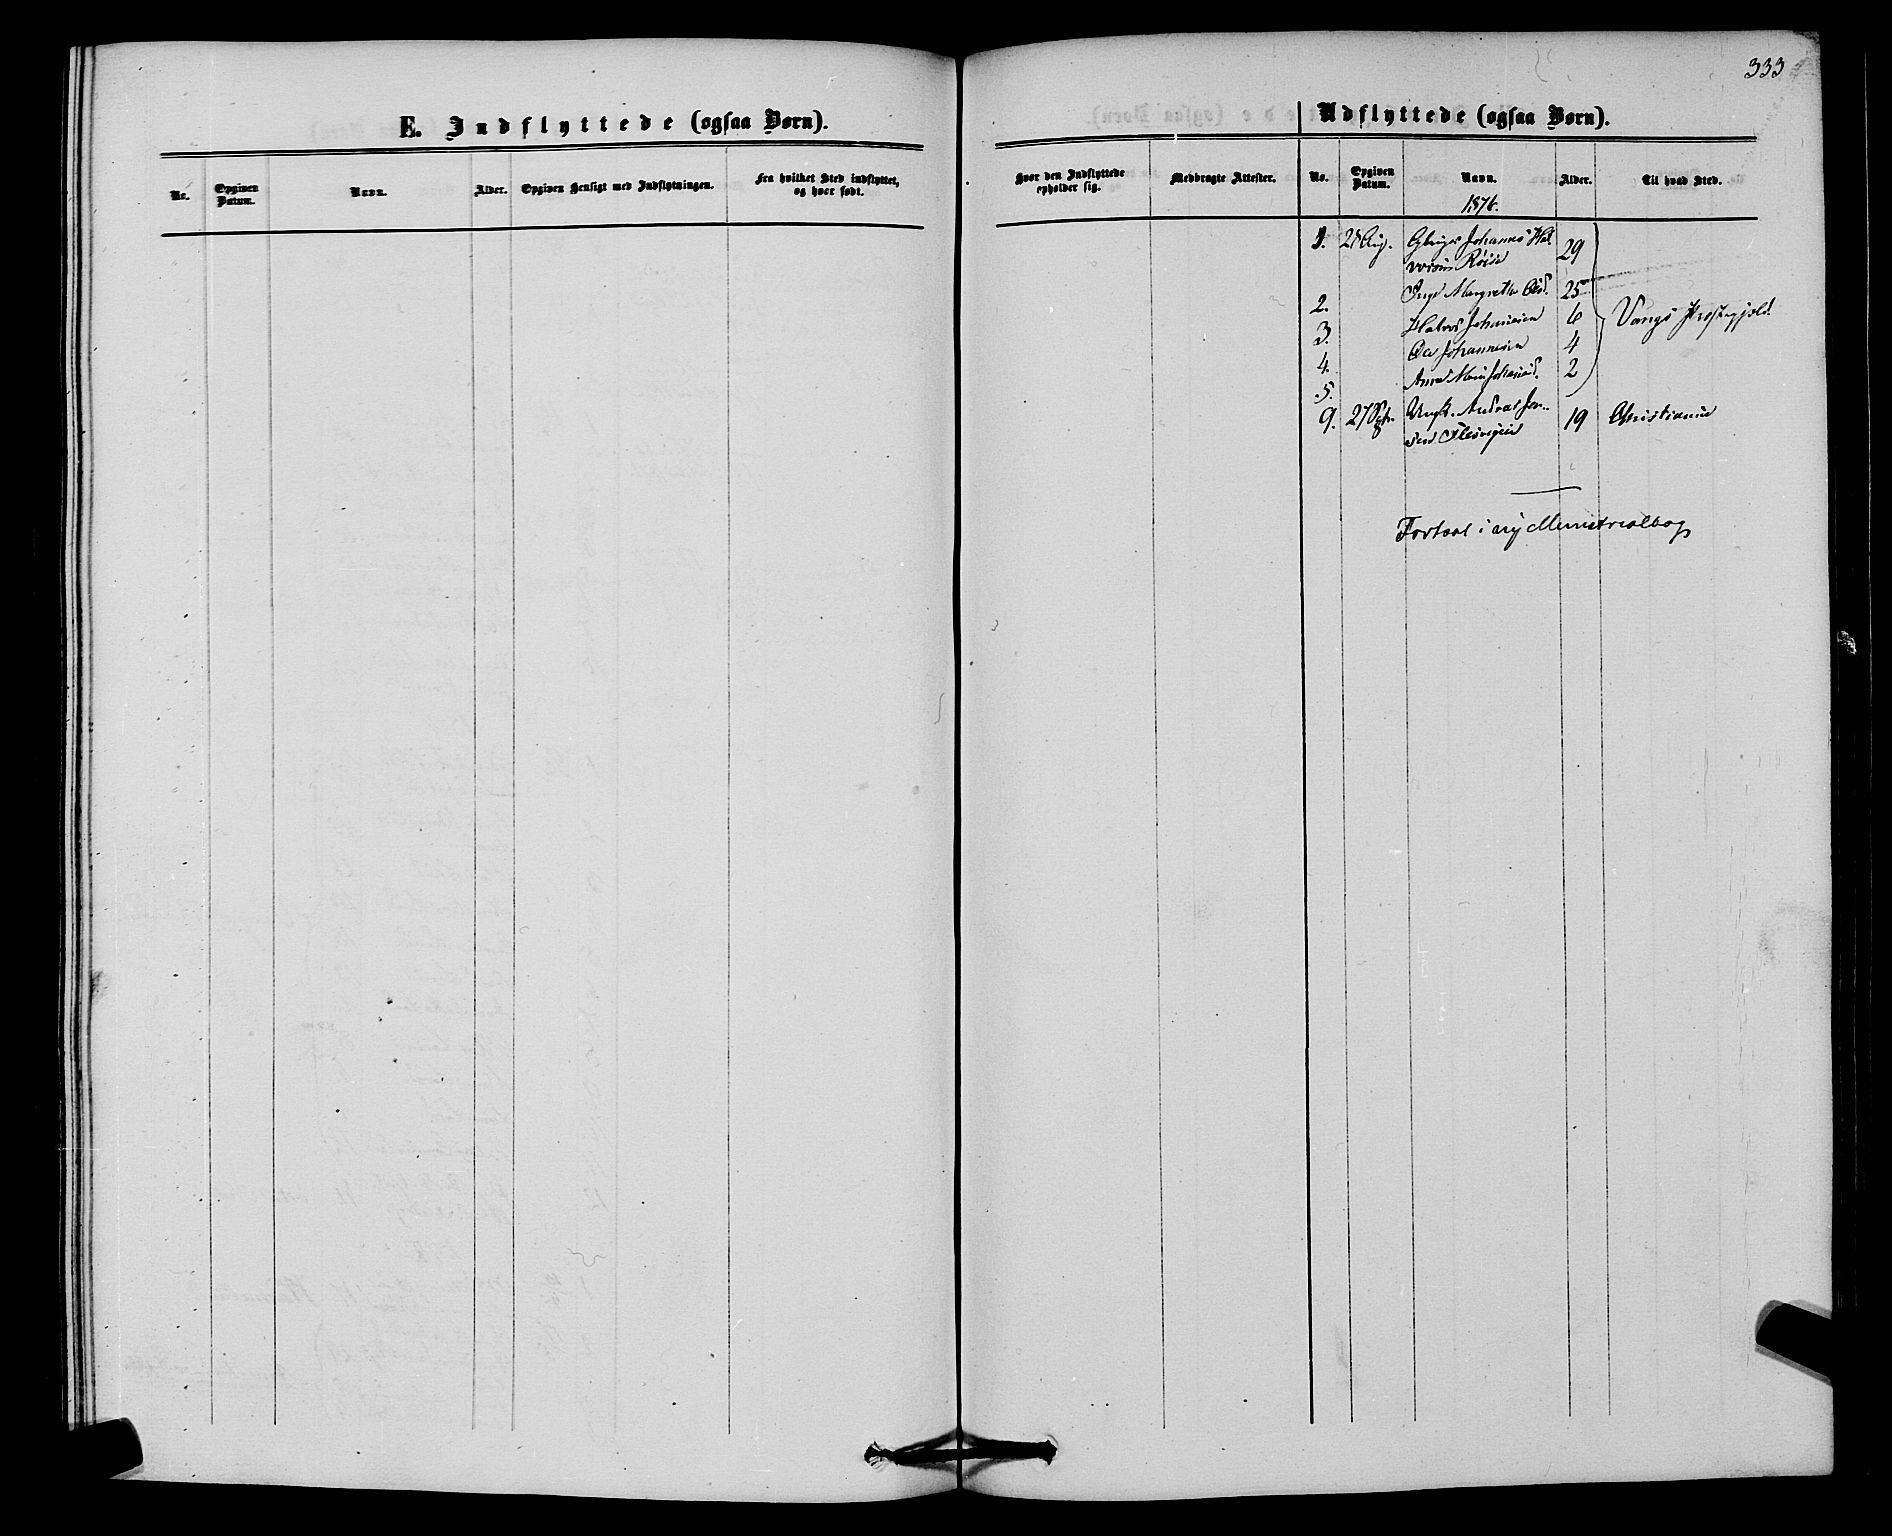 333
E. Indflyttede (ogsaa Børn).
No.
Opgiven Datum.
Navn.
Alder.
Opgiven Hensigt med Indflytningen.
Fra hvilket Sted indflyttet, og hvor født.
Hvor den Indflyttede opholder sig.
Medbragte Attester.
Udflyttede (ogsaa Børn).
No.
Opgiven Datum.
Navn.
Alder.
Til hvad Sted.
1876.
1. Aug. Johannes Hal- 29
2. Inge Margrethe Olsd. 25
3. Halvor Johannesen 6 Vangs Præstegjeld
4. Ole Johannesen 4
5. Anne Marie Johannesd. 2
9. 27 Sept. Ungk. Andreas 19 Christiania
Fortsat i ny Ministerialbog